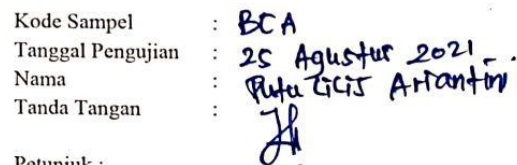 Kode Sampel : BCA
Tanggal Pengujian : 25 Agustus 2021.
Nama : Putu Cicis Ariantini
Tanda Tangan :
Petunjuk :